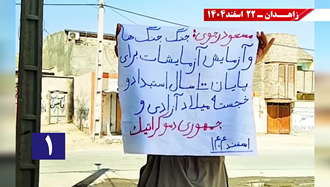 زاهدان ــ ۲۲ اسفند۱۴۰۴
مسعود رجوی: جنگ جنگ‌ها
و آزمایش آزمایشات برای
پایان ۱۰۰ سال استبداد و
خجسته میلاد آزادی و
جمهوری دموکراتیک
اسفند ۱۴۰۴
۱